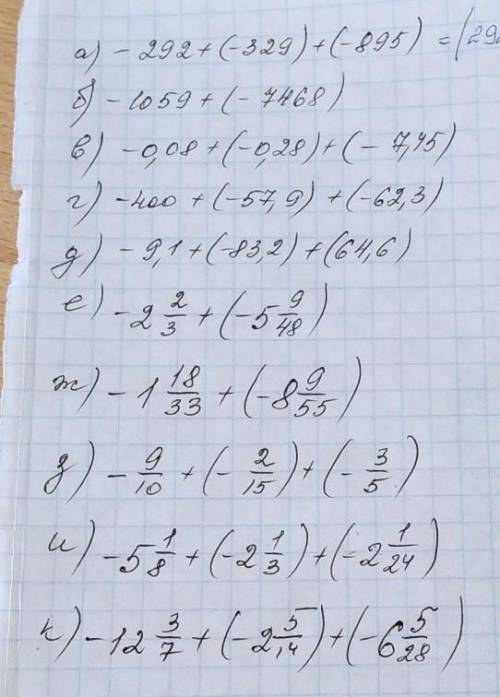 а) - 292 + (-329) + (-895) = (29
б) - 1059 + (- 7468)
в) - 0,08 + (-0,28) + (- 7,45)
г) -400 + (-57,9) + (-62,3)
д) - 9,1 + (-83,2) + (64,6)
е) - 2 2/3 + (-5 9/48)
ж) - 1 18/33 + (-8 9/55)
з) - 9/10 + (- 2/15) + (- 3/5)
и) -5 1/8 + (-2 1/3) + (-2 1/24)
к) -12 3/7 + (-2 5/14) + (-6 5/28)